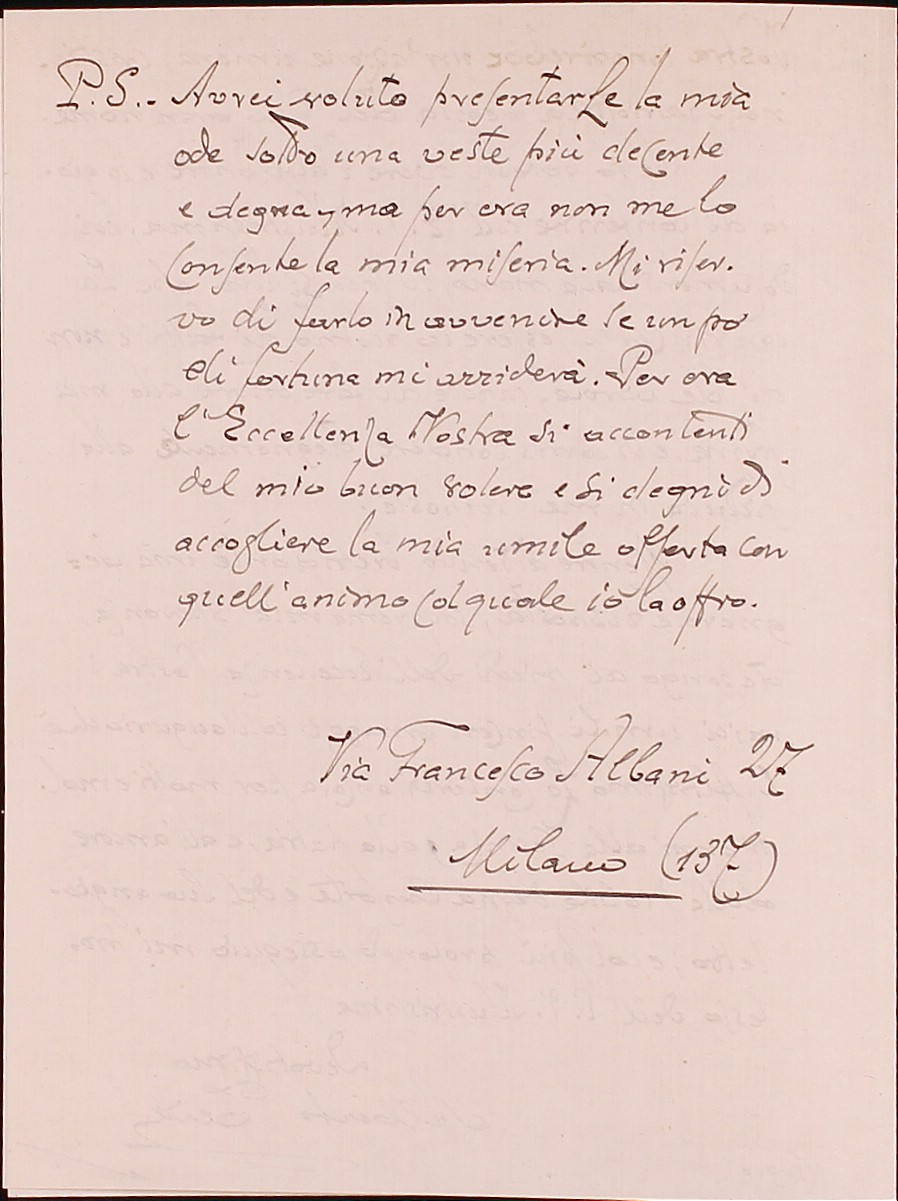 P.S.- Avrei voluto presentarLe la mia
ode sotto una veste più decente
e degna, ma per ora non me lo
consente la mia miseria. Mi riser-
vo di farlo in avvenire se un po'
di fortuna mi arriderà. Per ora
l'Eccellenza Vostra si accontenti
del mio buon volere e si degni di
accogliere la mia umile offerta con
quell'animo col quale io la offro.
Via Francesco Albani 27
Milano (137)